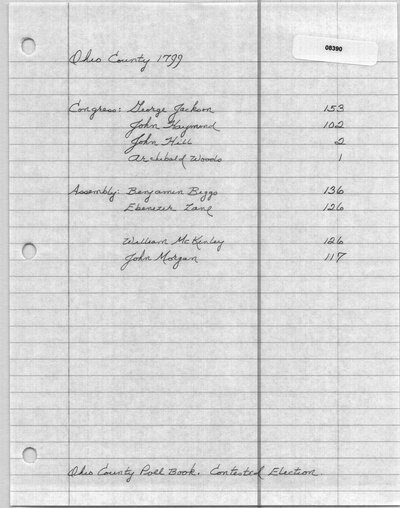 08390
Ohio County 1799
Congress: George Jackson 153
John Haymond 102
John Hill 2
Archibald Woods 1
Assembly: Benjamin Biggs 136
Ebenezer Zane 126
William McKinley 126
John Morgan 117
Ohio County Poll Book. Contested Election.